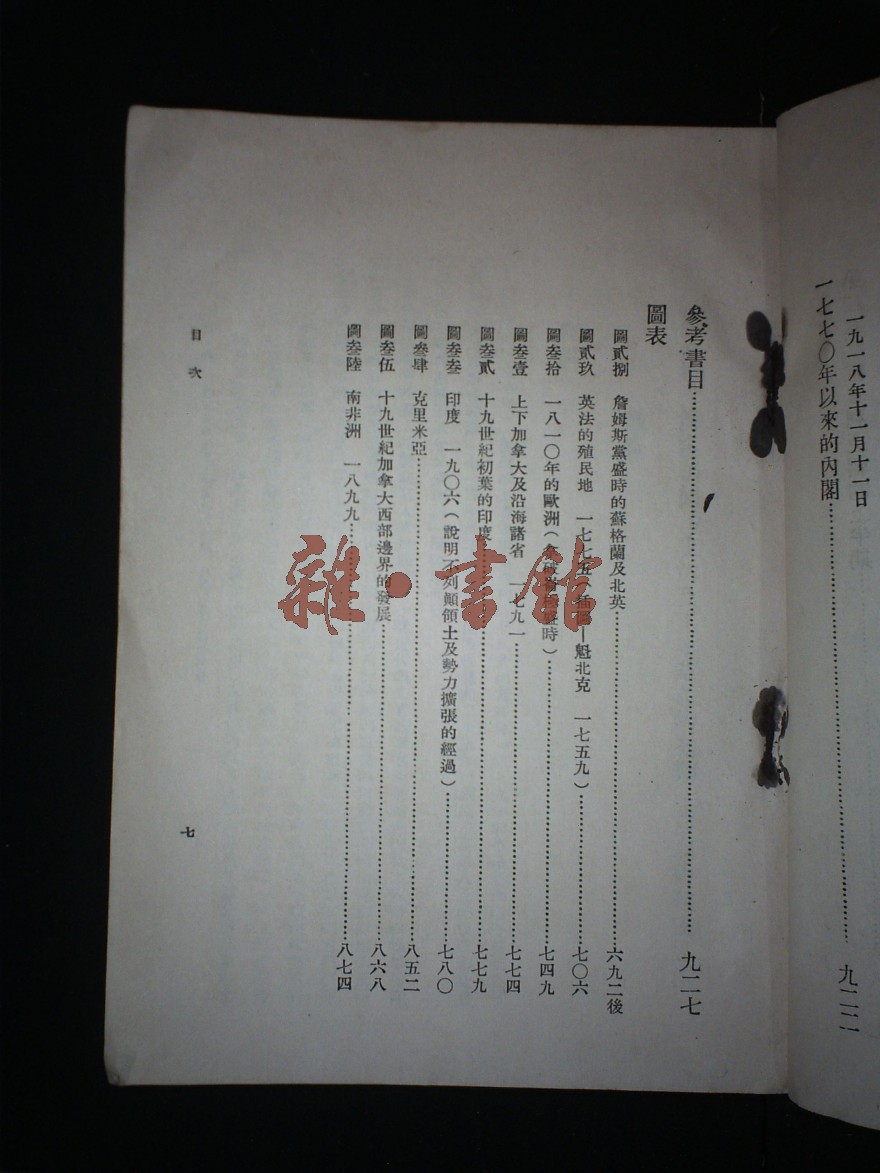 一九一八年十一月十一日
一七七〇年以來的內閣……九二二
參考書目……九二七
圖表
圖貳捌 詹姆斯黨盛時的蘇格蘭及北英……六九二後
圖貳玖 英法的殖民地 一七七五(插圖—魁北克 一七五九)……七〇六
圖叁拾 一八一〇年的歐洲(拿破崙極盛時)……七四九
圖叁壹 上下加拿大及沿海諸省 一七九一……七七四
圖叁貳 十九世紀初葉的印度……七七九
圖叁叁 印度 一九〇六(說明不列顛領土及勢力擴張的經過)……七八〇
圖叁肆 克里米亞……八五二
圖叁伍 十九世紀加拿大西部邊界的發展……八六八
圖叁陸 南非洲 一八九九……八七四
目次
七
雜·書館